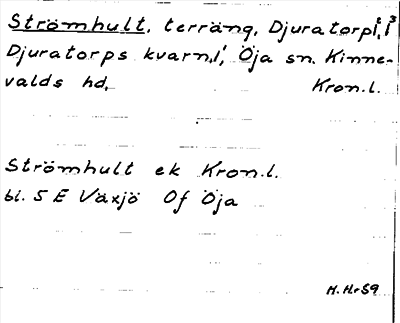 Strömhult, terräng, Djuratorp 1:2, 1:3
Djuratorps kvarn 1:1, Öja sn. Kinne-
valds hd, Kron.l.
Strömhult ek Kron.l.
bl. 5 E Växjö Of Öja
H.H-r 59